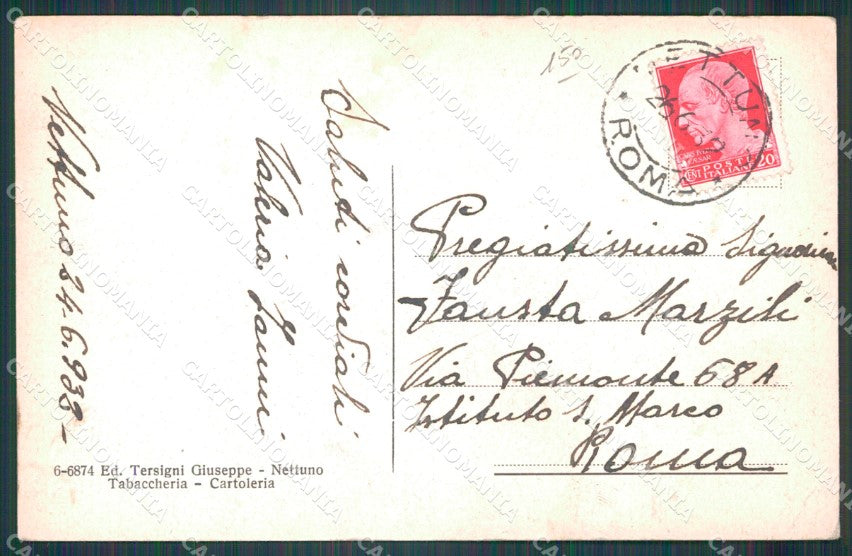 Nettuno 24.6.938-
Saluti cordiali
Valeria
6-6874 Ed. Tersigni Giuseppe - Nettuno
Tabaccheria - Cartoleria
150
NETTUNO
26.6.38
* ROMA *
POSTE
ITALIANE
CENT 20
Pregiatissima Signorina
Fausta Marzili
Via Piemonte 68A
Istituto S. Marco
Roma
CARTOLINOMANIA